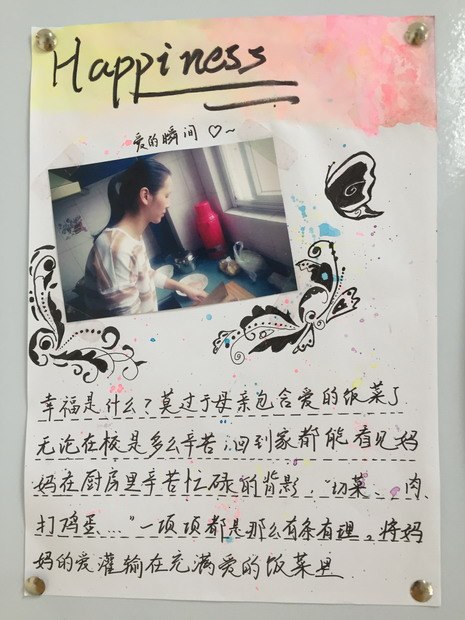 Happiness
爱的瞬间♡~
幸福是什么？莫过于母亲包含爱的饭菜了
无论在校是多么辛苦,回到家都能看见妈
妈在厨房里辛苦忙碌的背影，"切菜、肉、
打鸡蛋…"一项项都是那么有条有理。将妈
妈的爱灌输在充满爱的饭菜里